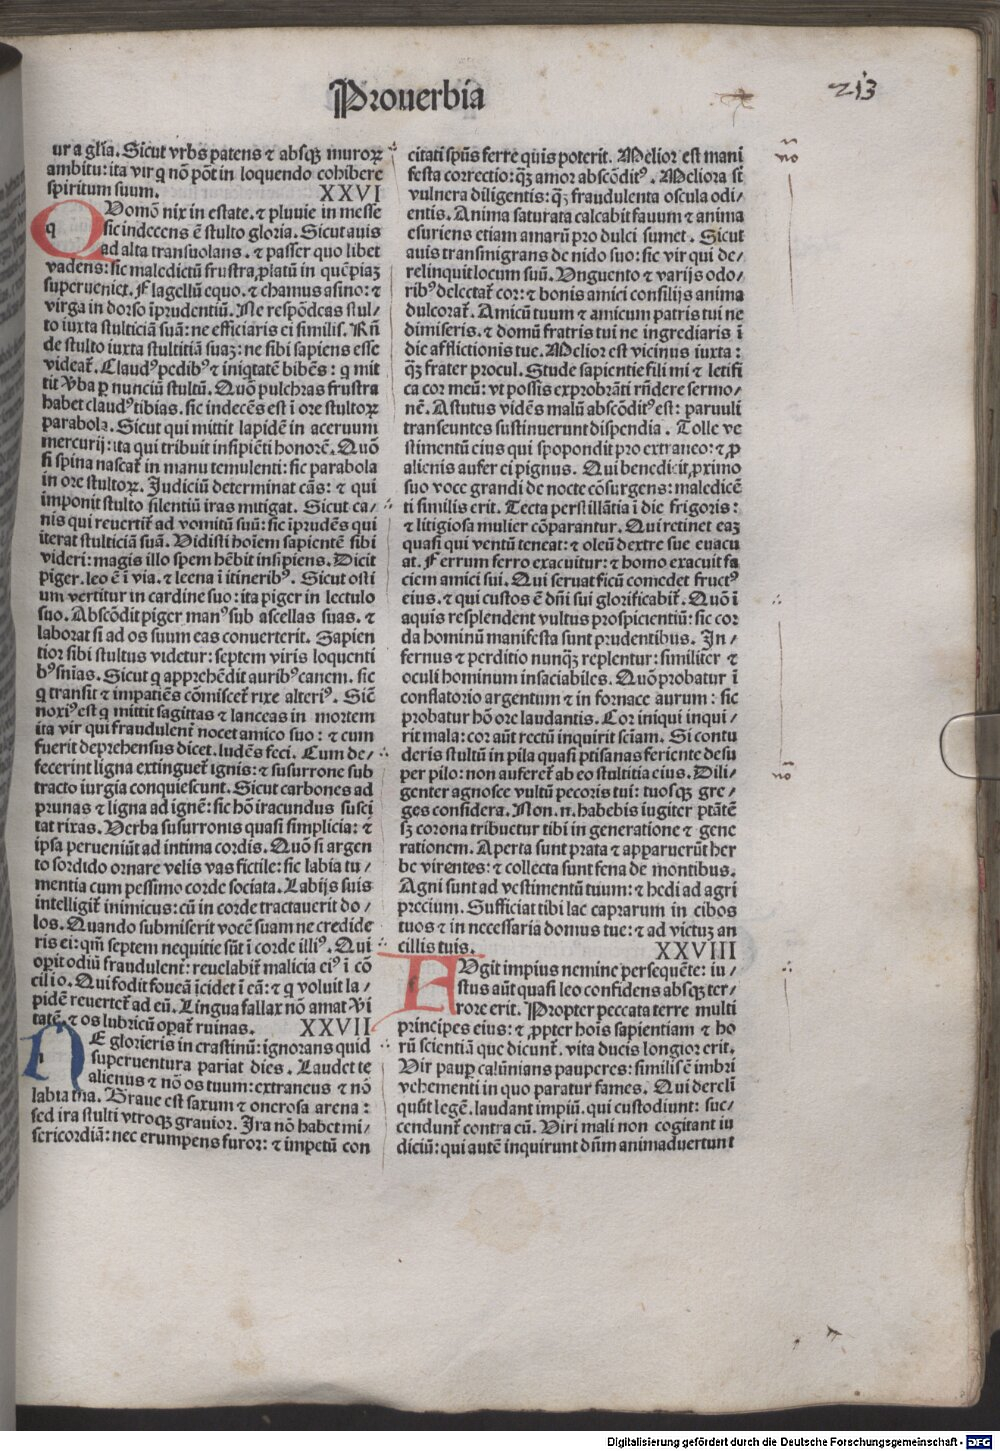 Prouerbia
213
ur a glīa. Sicut vrbs patens ⁊ absqꝫ muroꝝ
ambitu: ita vir q̄ nō pōt in loquendo cohibere
spiritum suum. XXVI
QUomō nix in estate. ⁊ pluuie in messe
q sic indecens ē stulto gloria. Sicut auis
ad alta transuolans. ⁊ passer quo libet
vadens: sic maledictū frustra ꝓlatū in quēpiaꝫ
superueniet. Flagellū equo. ⁊ chamus asino: ⁊
virga in dorso īprudentiū. Ne respōdeas stul/
to iuxta stulticiā suā: ne efficiaris ei similis. Rñ
de stulto iuxta stultitiā suaꝫ: ne sibi sapiens esse
videat᷑. Claudꝰ pedibꝰ ⁊ iniqtatē bibēs: q mit
tit v̄ba ꝑ nunciū stultū. Quō pulchras frustra
habet claudꝰ tibias. sic indecēs est ī ore stultoꝝ
parabola. Sicut qui mittit lapidē in aceruum
mercurij: ita qui tribuit insipiēti honorē. Quō
si spina nascat᷑ in manu temulenti: sic parabola
in ore stultoꝝ. Judiciū determinat cās: ⁊ qui
imponit stulto silentiū iras mitigat. Sicut ca/
nis qui reuertit᷑ ad vomitū suū: sic īprudēs qui
iterat stulticiā suā. Vidisti hoīem sapientē sibi
videri: magis illo spem hēbit insipiens. Dicit
piger. leo ē ī via. ⁊ leena ī itineribꝰ. Sicut osti
um vertitur in cardine suo: ita piger in lectulo
suo. Abscōdit piger manꝰ sub ascellas suas. ⁊
laborat si ad os suum eas conuerterit. Sapien
tior sibi stultus videtur: septem viris loquenti
bꝰ snīas. Sicut q apprehēdit auribꝰ canem. sic
q transit ⁊ impatiēs cōmiscet᷑ rixe alteriꝰ. Sic̄
noxiꝰ est q mittit sagittas ⁊ lanceas in mortem
ita vir qui fraudulent᷑ nocet amico suo: ⁊ cum
fuerit deprehensus dicet. ludēs feci. Cum de/
fecerint ligna extinguet᷑ ignis: ⁊ susurrone sub
tracto iurgia conquiescunt. Sicut carbones ad
prunas ⁊ ligna ad ignē: sic hō iracundus susci
tat rixas. Verba susurronis quasi simplicia: ⁊
ipsa perueniūt ad intima cordis. Quō si argen
to sordido ornare velis vas fictile: sic labia tu/
mentia cum pessimo corde sociata. Labijs suis
intelligit᷑ inimicus: cū in corde tractauerit do/
los. Quando submiserit vocē suam ne credide
ris ei: qm̄ septem nequitie sūt ī corde illiꝰ. Qui
oꝑit odiū fraudulent᷑: reuelabit᷑ malicia eiꝰ ī cō
cilio. Qui fodit foueā īcidet ī eā: ⁊ q voluit la/
pidē reuertet᷑ ad eū. Lingua fallax nō amat v̄i
tatē. ⁊ os lubricū oꝑat᷑ ruinas. XXVII
NE glorieris in crastinū: ignorans quid
superuentura pariat dies. Laudet te
alienus ⁊ nō os tuum: extraneus ⁊ nō
labia tua. Graue est saxum ⁊ onerosa arena:
sed ira stulti vtroqꝫ grauior. Ira nō habet mi/
sericordiā: nec erumpens furor: ⁊ impetū con
citati spūs ferre quis poterit. Melior est mani
festa correctio: qꝫ amor abscōditꝰ. Meliora sī
vulnera diligentis: qꝫ fraudulenta oscula odi/
entis. Anima saturata calcabit fauum ⁊ anima
esuriens etiam amarū pro dulci sumet. Sicut
auis transmigrans de nido suo: sic vir qui de/
relinquit locum suū. Vnguento ⁊ varijs odo/
ribꝰ delectat᷑ cor: ⁊ bonis amici consilijs anima
dulcorat᷑. Amicū tuum ⁊ amicum patris tui ne
dimiseris. ⁊ domū fratris tui ne ingrediaris ī
die afflictionis tue. Melior est vicinus iuxta:
qꝫ frater procul. Stude sapientie fili mi ⁊ letifi
ca cor meū: vt possis exprobrāti rn̄dere sermo/
nē. Astutus vidēs malū abscōditꝰ est: paruuli
transeuntes sustinuerunt dispendia. Tolle ve
stimentū eius qui spopondit pro extraneo: ⁊ ꝓ
alienis aufer ei pignus. Qui benedicit ꝓximo
suo voce grandi de nocte cōsurgens: maledicē
ti similis erit. Tecta perstillātia ī die frigoris:
⁊ litigiosa mulier cōparantur. Qui retinet eaꝫ
quasi qui ventū teneat: ⁊ oleū dextre sue euacu
at. Ferrum ferro exacuitur: ⁊ homo exacuit fa
ciem amici sui. Qui seruat ficū comedet fructꝰ
eius. ⁊ qui custos ē dn̄i sui glorificabit᷑. Quō ī
aquis resplendent vultus prospicientiū: sic cor
da hominū manifesta sunt prudentibus. In/
fernus ⁊ perditio nunqꝫ replentur: similiter ⁊
oculi hominum insaciabiles. Quō probatur ī
conflatorio argentum ⁊ in fornace aurum: sic
probatur hō ore laudantis. Cor iniqui inqui/
rit mala: cor aūt rectū inquirit scīam. Si contu
deris stultū in pila quasi ptisanas feriente desu
per pilo: non auferet᷑ ab eo stultitia eius. Dili/
genter agnosce vultū pecoris tui: tuosqꝫ gre/
ges considera. Non. n. habebis iugiter ptātē
sꝫ corona tribuetur tibi in generatione ⁊ gene
rationem. Aperta sunt prata ⁊ apparuerūt her
be virentes: ⁊ collecta sunt fena de montibus.
Agni sunt ad vestimentū tuum: ⁊ hedi ad agri
precium. Sufficiat tibi lac caprarum in cibos
tuos ⁊ in necessaria domus tue: ⁊ ad victuꝫ an
cillis tuis. XXVIII
FUgit impius nemine persequēte: iu/
stus aūt quasi leo confidens absqꝫ ter/
rore erit. Propter peccata terre multi
principes eius: ⁊ ꝓpter hoīs sapientiam ⁊ ho
rū scientiā que dicunt᷑. vita ducis longior erit.
Vir paup̄ calūnians pauperes: similis ē imbri
vehementi in quo paratur fames. Qui dereli
quūt legē. laudant impiū. qui custodiunt: suc/
cendunt᷑ contra eū. Viri mali non cogitant iu
diciū: qui autē inquirunt dn̄m animaduertunt
nō
nō
Digitalisierung gefördert durch die Deutsche Forschungsgemeinschaft - DFG